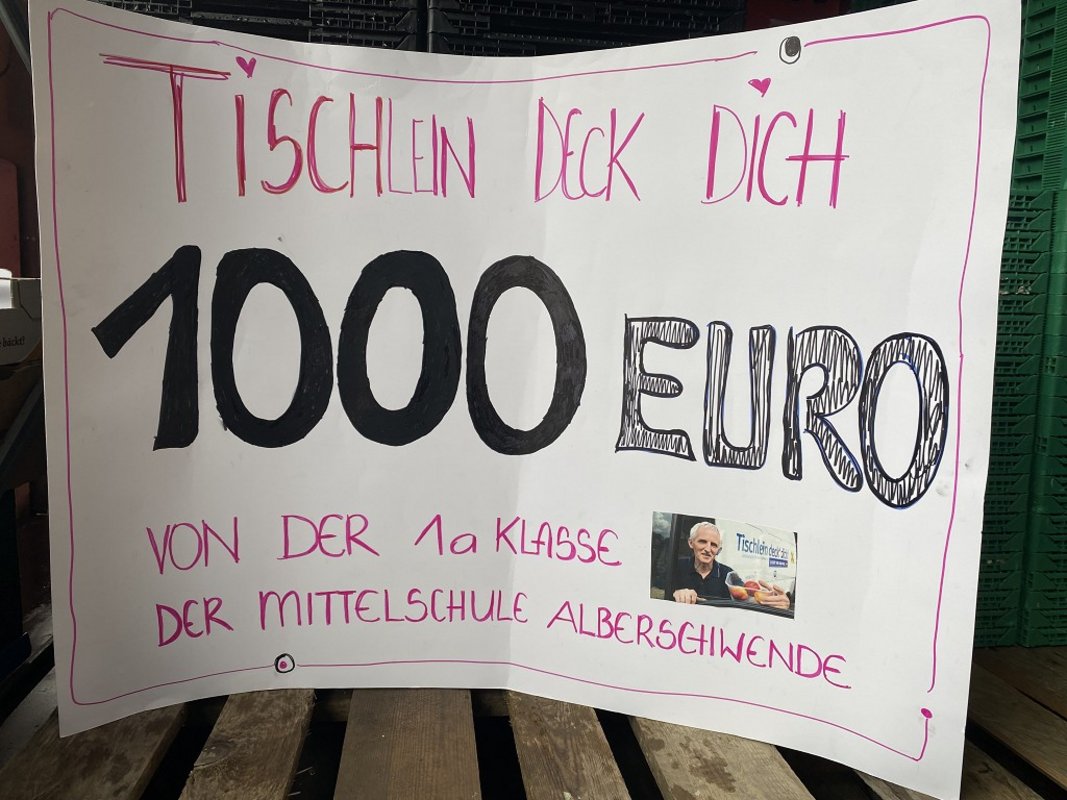 TiSCHLEIN DECK DiCH
1000 EURO
VON DER 1a KLASSE
DER MITTELSCHULE ALBERSCHWENDE
Tischlein deck dich
bäckt!